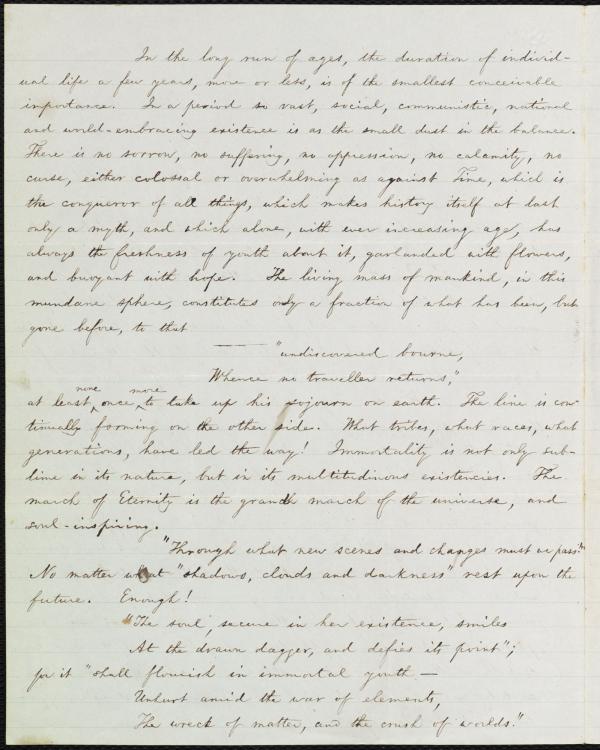 In the long run of ages, the duration of individ-
ual life a few years, more or less, is of the smallest conceivable
importance. In a period so vast, social, communistic, national
and world-embracing existence is as the small dust in the balance.
There is no sorrow, no suffering, no oppression, no calamity, no
curse, either colossal or overwhelming as against Time, which is
the conqueror of all things, which makes history itself at last
only a myth, and which alone, with ever increasing age, has
always the freshness of youth about it, garlanded with flowers,
and buoyant with hope. The living mass of mankind, in this
mundane sphere, constitutes only a fraction of what has been, but
gone before, to that
"undiscovered bourne,
Whence no traveller returns,"
none more
at least, once, to take up his sojourn on earth. The line is con-
tinually forming on the other side. What tribes, what races, what
generations, have led the way! Immortality is not only sub-
lime in its nature, but in its multitudinous existencies. The
march of Eternity is the grand march of the universe, and
soul-inspiring.
"Through what new scenes and changes must we pass!"
No matter what "shadows, clouds and darkness" rest upon the
future. Enough!
"The soul, secure in her existence, smiles
At the drawn dagger, and defies its point";
for it "shall flourish in immortal youth —
Unhurt amid the war of elements,
The wreck of matter, and the crush of worlds."